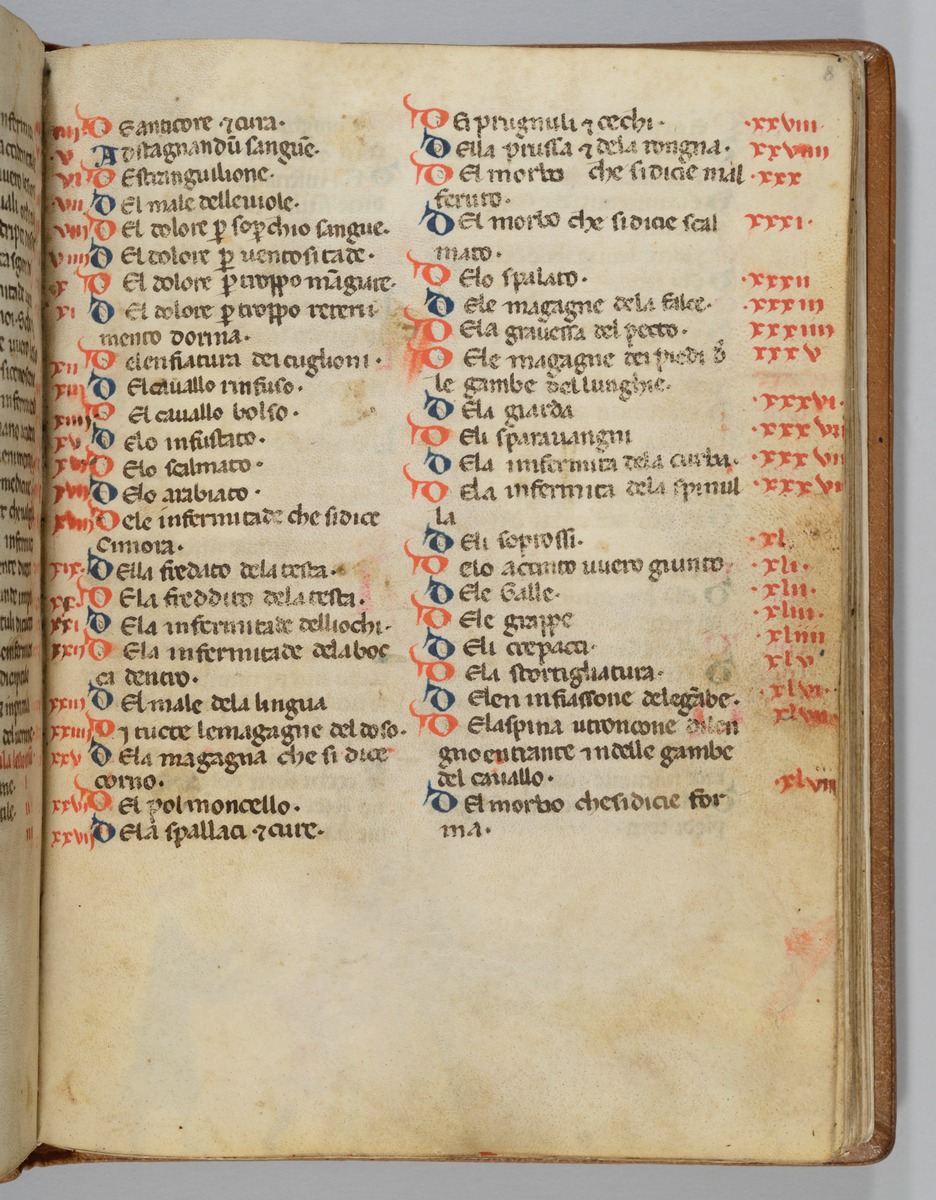 8
iiii D Eanticore ⁊ cura·
·v A distagnandū sangue·
vi D Estranguilione·
vii D El male delleviole·
viii D El dolore ꝑ soꝑchio sangue·
viiii D El dolore ꝑ ventositade·
x D El dolore ꝑ troppo māgiare·
xi D El dolore ꝑ troppo reteni
mento dorina·
xii D elenfiatura dei cuglioni·
xiii D El cavallo rinfuso·
xiiii D El cavallo bolso·
xv D Elo infustato·
xvi D Elo scalmato·
xvii D Elo arabiato·
xviii D ele infermitade che sidice
Cimora·
xix· D Ella fredato dela testa·
xx· D Ela freddito dela testa·
xxi D Ela infermitade delliochi·
xxii D Ela infermitade dela boc
ca dentro·
xxiii D El male dela lingua
xxiiii D i tucte lemagagne del doso·
xxv D Ela magagna che si dice
corno·
xxvi D El polmoncello·
xxvii D Ela spallaci ⁊ cure·
D Ei prugnuli ⁊ cechi· ·xxviii·
D Ella prusta ⁊ dela rongna· xxviiii
D El morbo che sidicie mal ·xxx
feruto·
D El morbo che sidicie scal xxxi·
mato·
D Elo spalato· ·xxxii
D Ele magagne dela falce· ·xxxiii
D Ela gravessa del pecto· xxxiiii
D Ele magagne dei piedi ·xxxv
le gambe del lunghie·
D Ela giarda ·xxxvi·
D Eli sparavangni ·xxxvii
D Ela infermita dela curba· ·xxxvii
D Ela infermita dela spinul ·xxxvii
la
D Eli soprossi· ·xl
D elo actinto uvero giunto ·xli·
D Ele Galle· ·xlii·
D Ele grappe ·xliii·
D Eli crepacci· xliiii
D Ela stortigliatura· ·xlv
D Elen infiassone delegābe· ·xlvi·
D Elaspina utroncone dilen ·xlvii
gno entrante ⁊ indelle gambe
del cavallo· ·xlviii
D El morbo chesidicie for
ma·